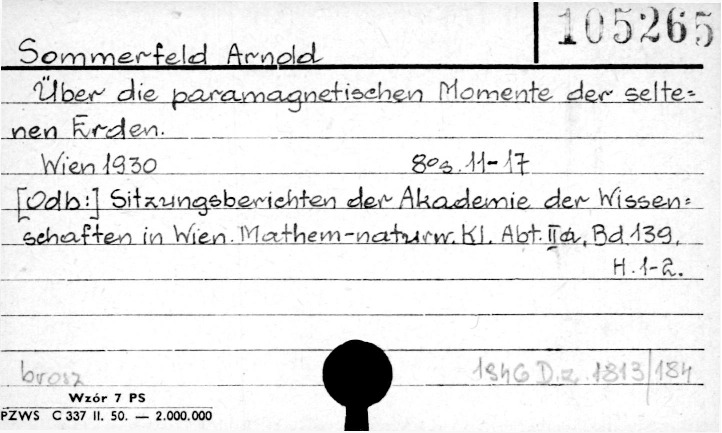 105265
Sommerfeld Arnold
Über die paramagnetischen Momente der selte=
nen Erden.
Wien 1930 8os. 11-17
[Odb:] Sitzungsberichten der Akademie der Wissen=
schaften in Wien. Mathem-naturw. Kl. Abt. IIa, Bd 139,
H. 1-2.
brosz 1946 D.z. 1813/184
Wzór 7 PS
PZWS C 337 II. 50. — 2.000.000